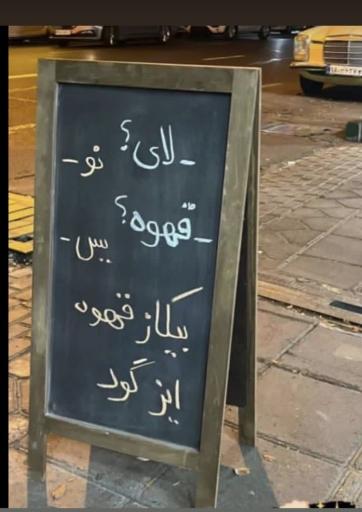 - لای؟
- نو
- قهوه؟
- یس
بیکاز قهوه
ایز گود